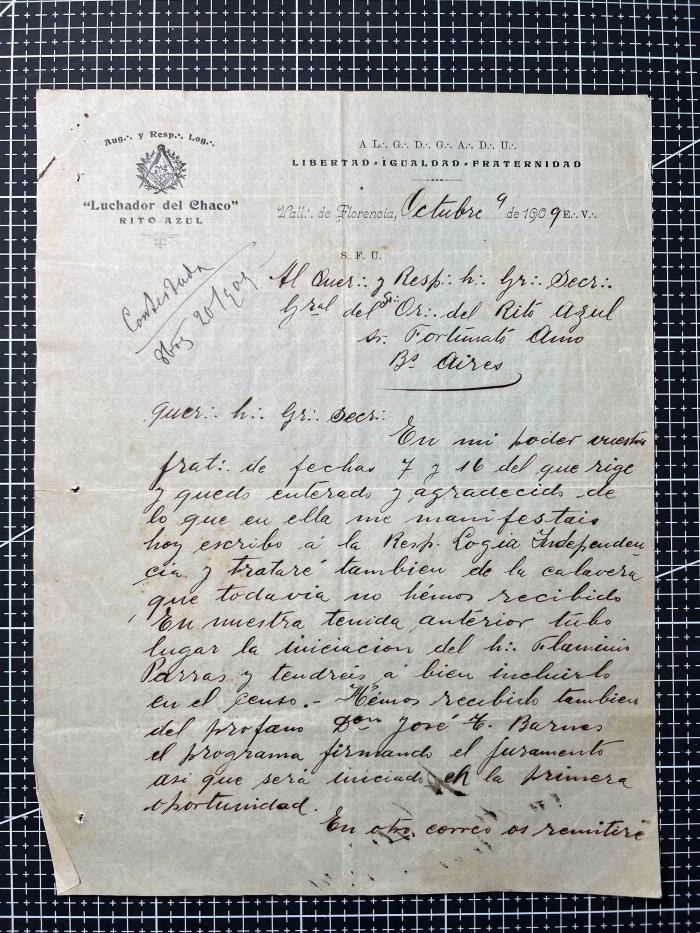 Aug.·. y Resp.·. Log.·.
"Luchador del Chaco"
RITO AZUL
A L.·. G.·. D.·. G.·. A.·. D.·. U.·.
LIBERTAD-IGUALDAD-FRATERNIDAD
Vall.·. de Florencia, Octubre 9 de 1909 E.·. V.·.
S. F. U.
Contestada
20/909
Al Quer.·. y Resp.·. h.·. Gr.·. Secr.·.
Gral del Gr.·. Or.·. del Rito Azul
Sr. Fortunato Amo
Bs Aires
Quer.·. h.·. Gr.·. Secr.·.
En mi poder vuestra
frat.·. de fechas 7 y 16 del que rige
y quedo enterado y agradecido de
lo que en ella me manifestais
hoy escribo á la Resp. Logia Independen
cia y trataré tambien de la calavera
que todavia no hémos recibido
En nuestra tenida anterior tubo
lugar la iniciacion del h.·. Flaminio
Parras y tendreis á bien incluirlo
en el censo.- Hémos recibido tambien
del profano Don José E. Barnes
el programa firmando el juramento
asi que será iniciado en la primera
oportunidad.
En otro correo os remitiré